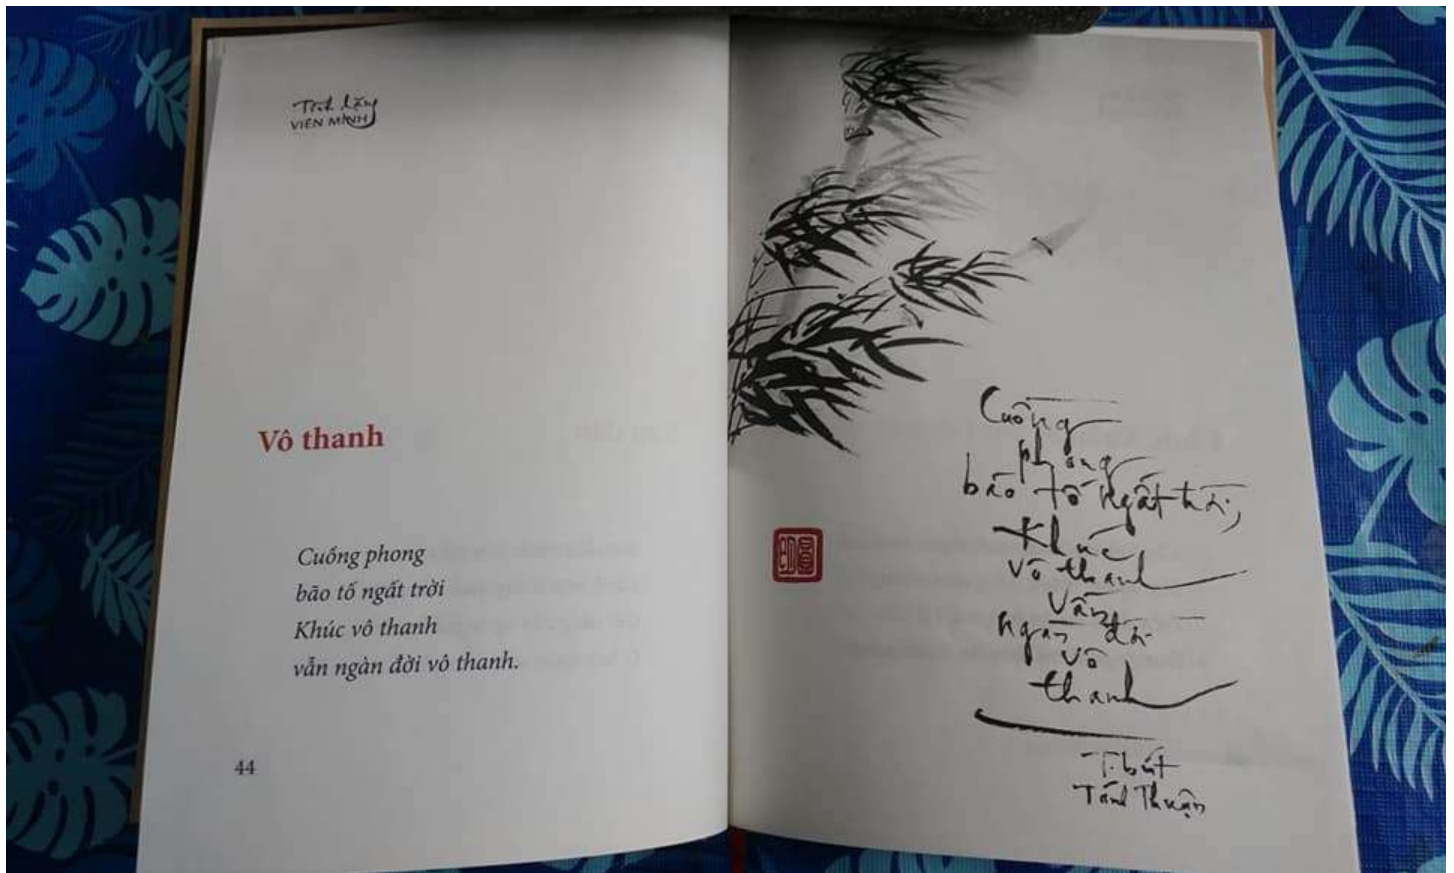 Tĩnh lặng
VIÊN MINH
Vô thanh
Cuồng phong
bão tố ngất trời
Khúc vô thanh
vẫn ngàn đời vô thanh.
44
Cuồng
phong
bão tố ngất trời,
Khúc
vô thanh
Vẫn
ngàn đời
vô
thanh
T. bút
Tánh Thuận